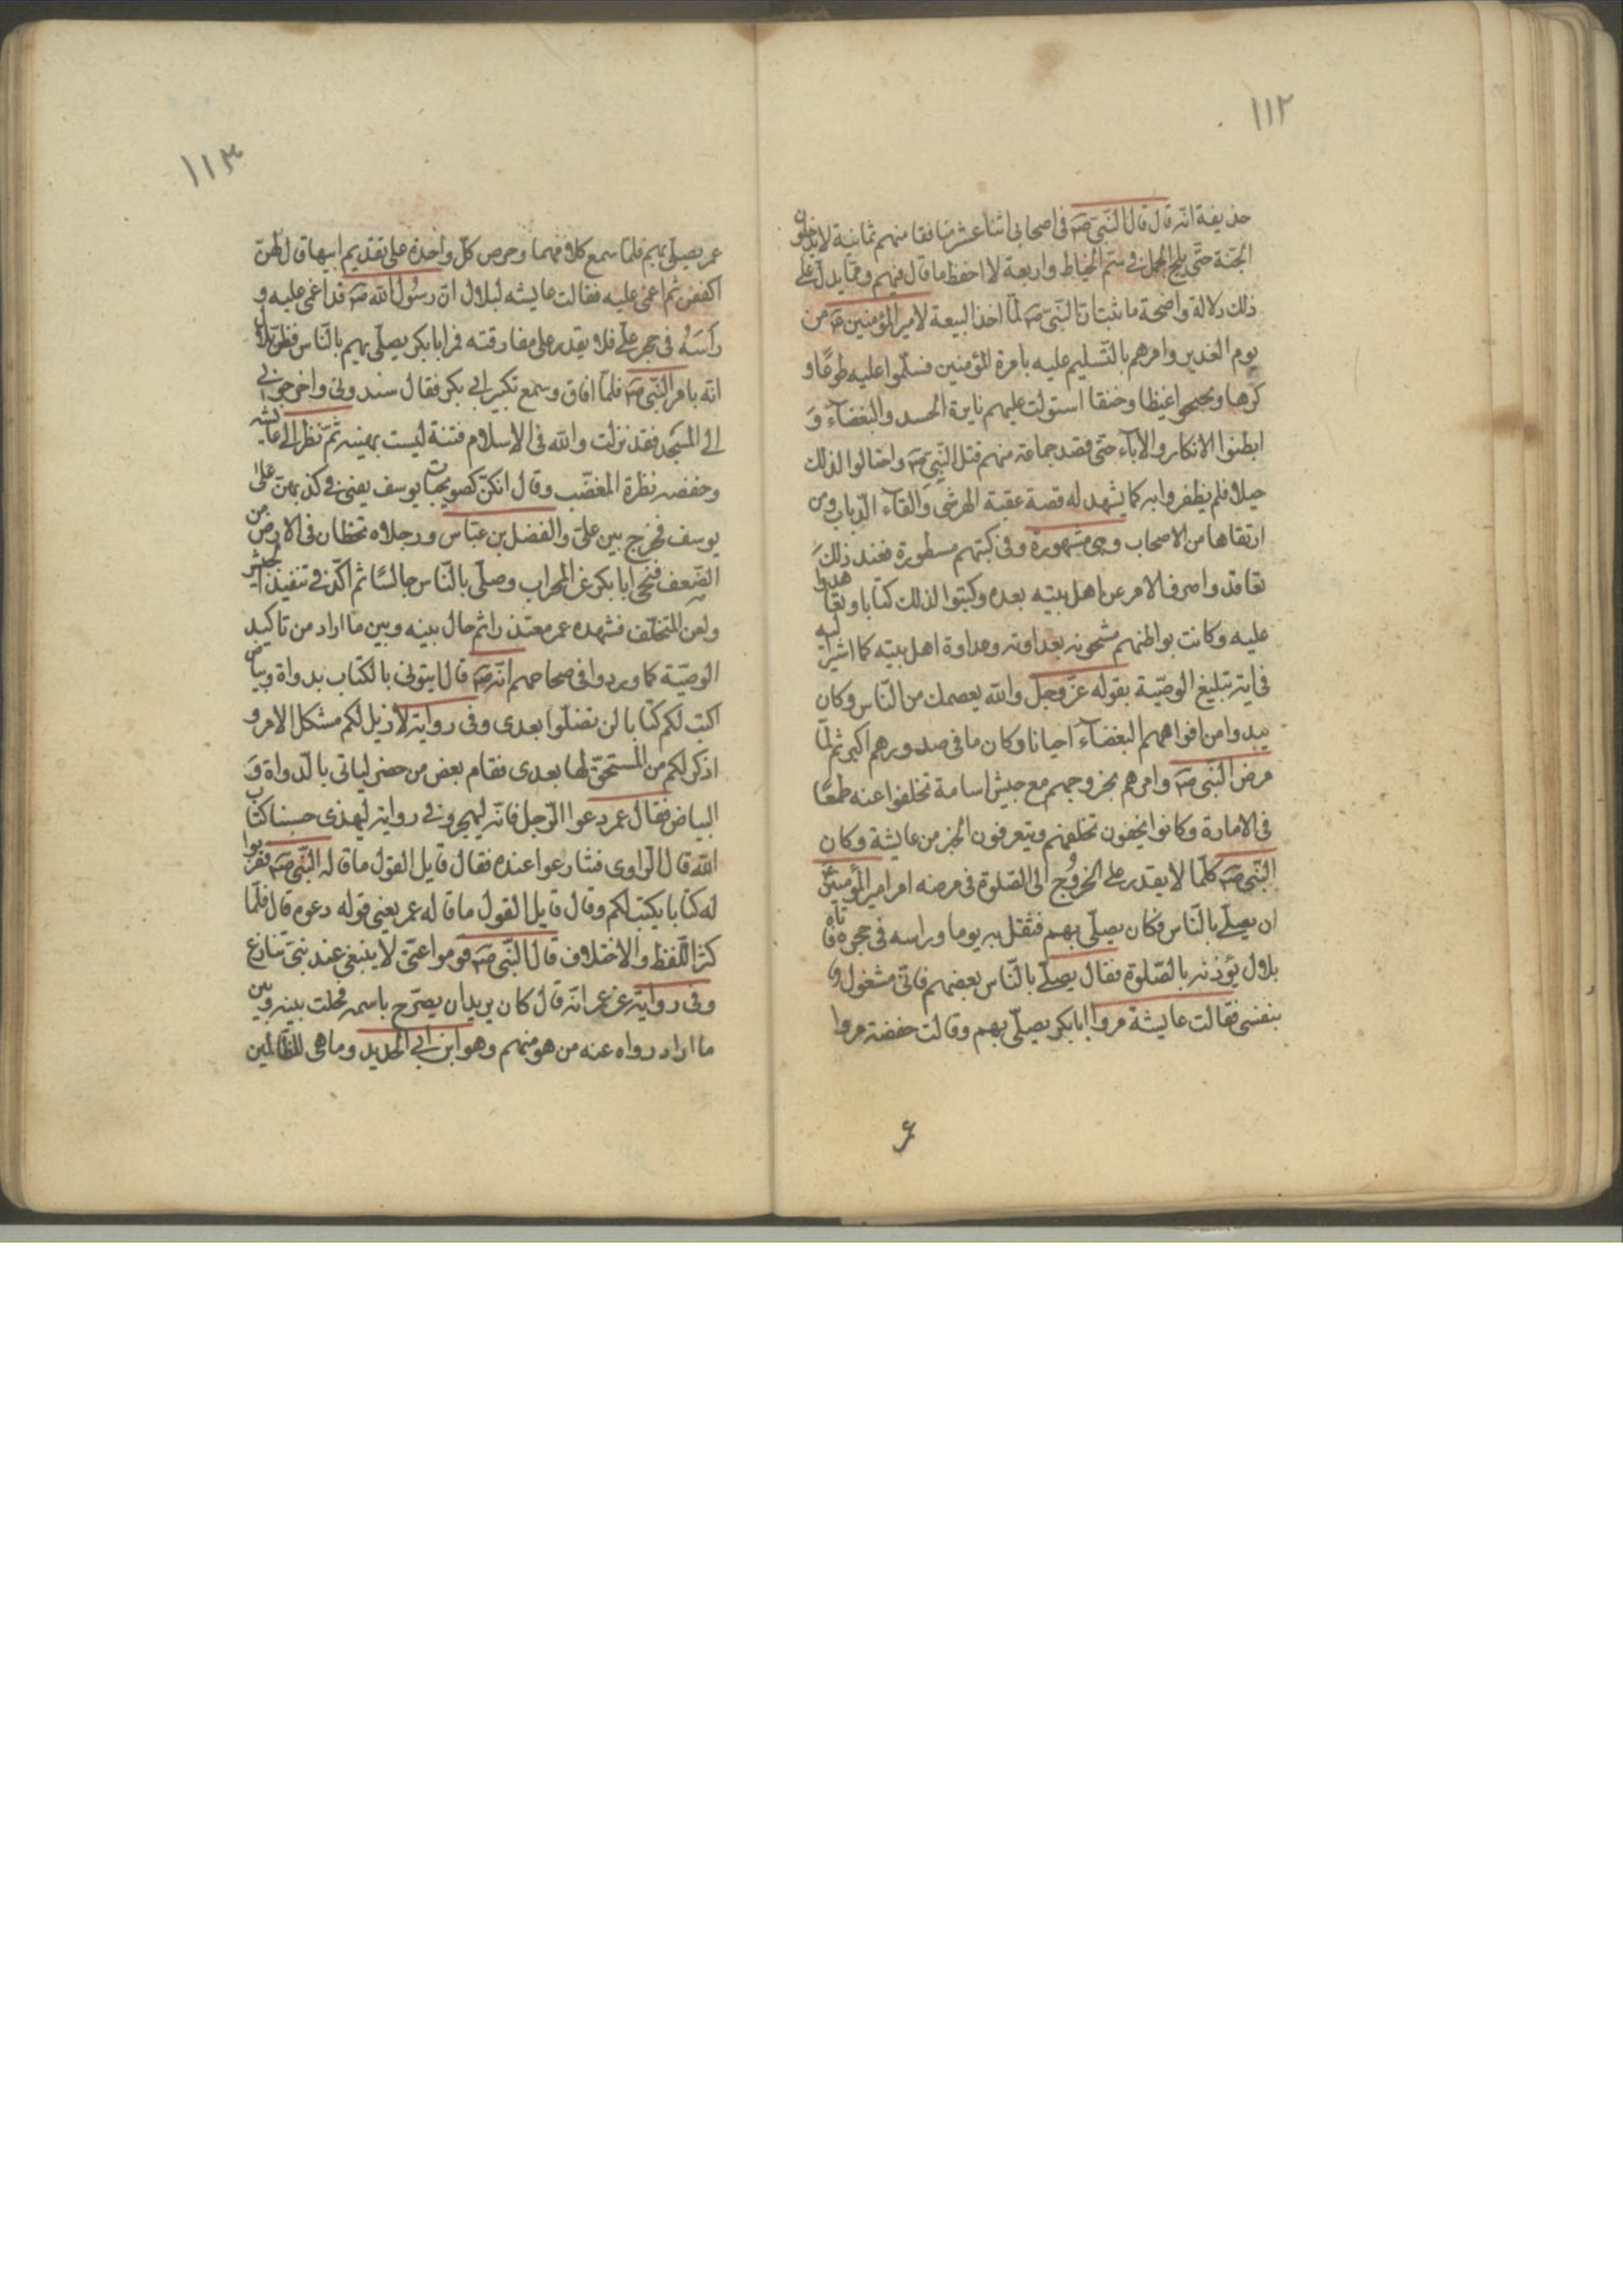 ١١٢
حذيفة انه قال قال النبي صه في اصحابي اثنا عشر منافقا منهم ثمانية لا يدخلون
الجنة حتى يلج الجمل في سم الخياط واربعة لا احفظ ما قال فيهم ومما يدل على
ذلك دلالة واضحة ما ثبت ان النبي صه لما اخذ البيعة لامير المؤمنين صه من
يوم الغدير وامرهم بالتسليم عليه بامرة المؤمنين فسلموا عليه طوعا و
كرها غيظا وخنقا استولت عليهم نايرة الحسد والبغضآء وَ
ابطنوا الانكار والابآء حتى قصد جماعة منهم قتل النبي صه واحتالوا لذلك
حيلا فلم يظفروا به كما يشهد له قصة عقبة الهرشى والقآء الدباب ومن
ارتقاها من الاصحاب وهي مشهورة وفي كتبهم مسطورة فعند ذلك
تعاقدوا صرف الامر عن اهل بيته بعده وكتبوا لذلك كتابا وتعاهدوا
عليه وكانت بواطنهم مشحونه بعداوته وعداوة اهل بيته كما اشير اليه
في اية تبليغ الوصية بقوله عز وجل والله يعصمك من الناس وكان
يبدوا من افواههم البغضآء احيانا وكان ما في صدورهم اكبر ثم لما
مرض النبي صه وامرهم بخروجهم مع جيش اسامة تخلفوا عنه طمعًا
في الامارة وكانوا يخفون تخلفهم ويتعرفون الخبر من عايشة وكان
النبي صه كلما لا يقدر على الخروج الى الصلوة في مرضه امر امير المؤمنين
ان يصلي بالناس فكان يصلي بهم فثقل به يوما وراسه في حجره فاتاه
بلال يؤذنه بالصلوة فقال يصلي بالناس بعضهم فاني مشغول
بنفسي فقالت عايشة مروا ابابكر يصلي بهم وقالت حفصة مروا
١١٣
عمر يصلي بهم فلما سمع كلامهما وحرص كل واحدة على تقديم ابيها قال لهن
اكففن ثم اغمي عليه فقالت عايشه لبلال ان رسول الله صه قد اغمي عليه و
رأسه في حجر علي فلا يقدر على مفارقته فمر ابابكر يصلي بهم بالناس فظن بلال
انه بامر النبي صه فلما افاق وسمع تكبير ابي بكر فقال سندوني واخرجوني
الى المسجد فقد نزلت والله في الاسلام فتنة ليست بهينه ثم نظر الى عايشه
وحفصه نظرة المغضب وقال انكن كصويحبات يوسف يعني في كذبهن على
يوسف فخرج بين علي والفضل بن عباس ورجلاه تخطان في الارض من
الضعف فنحى ابابكر عن المحراب وصلى بالناس جالسًا ثم اكد في تنفيذ الجيش
ولعن المتخلف فشهده عمر معتذرا ثم حال بينه وبين ما اراد من تاكيد
الوصية كما وردوا في صحاحهم انه صه قال ايتوني بالكتاب بدواة وبياض
اكتب لكم كتابا لن تضلوا بعدى وفي رواية لازيل لكم مشكل الامر و
اذكر لكم من المستحق لها بعدى فقام بعض من حضر لياتي بالدواة وَ
البياض فقال عمر دعوا الرجل فانه ليهجر وفي رواية ليهذى حسبنا كتاب
الله قال الراوى فتنازعوا عنده فقال قايل القول ما قاله النبي صه فقربوا
له كتابا يكتب لكم وقال قايل القول ما قاله عمر يعني قوله دعوه قال فلما
كثر اللفظ والاختلاف قال النبي صه قوموا عني لا ينبغي عند نبي تنازع
وفي رواية عن عمر انه قال كان يريد ان يصرح باسمه فحلت بينه وبين
ما اراد رواه عنه من هو منهم وهو ابن ابي الحديد وما هي للظالمين